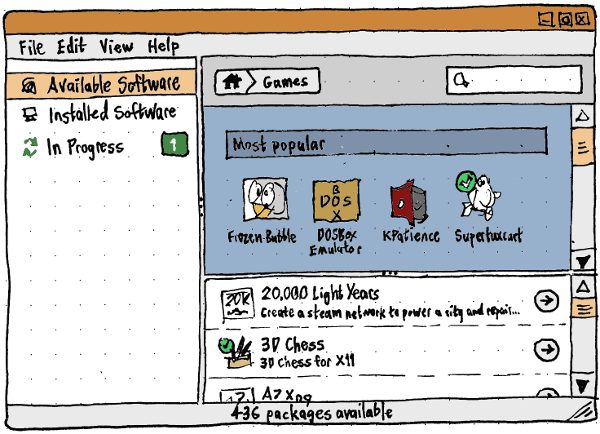 File Edit View Help
Available Software
Installed Software
In Progress
1
Games
Most popular
Frozen-Bubble
B
DOS
X
DOSBox
Emulator
KPatience
Supertuxcart
20K
20,000 Light Years
Create a steam network to power a city and repair...
3D Chess
3D Chess for X11
436 packages available